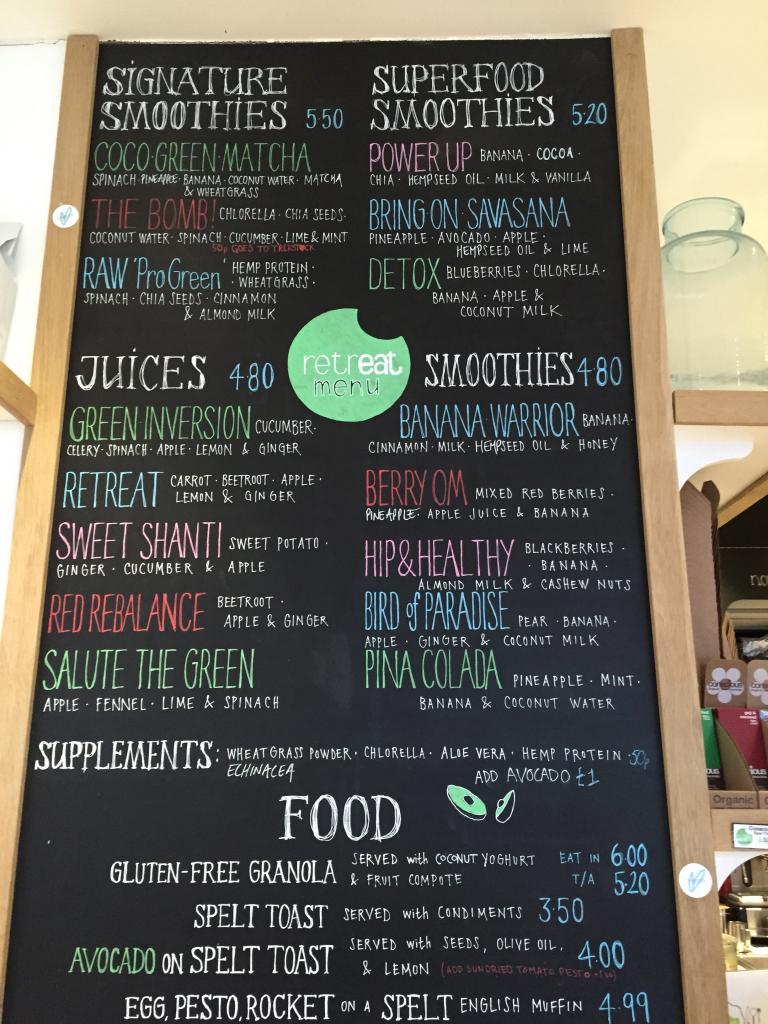 SIGNATURE
SMOOTHIES 5.50
COCO·GREEN·MATCHA
SPINACH·PINEAPPLE·BANANA·COCONUT WATER·MATCHA
& WHEATGRASS
THE BOMB! CHLORELLA·CHIA SEEDS·
COCONUT WATER·SPINACH·CUCUMBER·LIME & MINT
50p GOES TO TREESTOCK
RAW 'ProGreen HEMP PROTEIN·
·WHEATGRASS·
SPINACH·CHIA SEEDS·CINNAMON
& ALMOND MILK
SUPERFOOD
SMOOTHIES 5.20
POWER UP BANANA·COCOA·
CHIA·HEMPSEED OIL·MILK & VANILLA
BRING·ON·SAVASANA
PINEAPPLE·AVOCADO·APPLE·
HEMPSEED OIL & LIME
DETOX BLUEBERRIES·CHLORELLA·
BANANA·APPLE &
COCONUT MILK
retreat
menu
JUICES 4.80
GREEN INVERSION CUCUMBER·
CELERY·SPINACH·APPLE·LEMON & GINGER
RETREAT CARROT·BEETROOT·APPLE·
LEMON & GINGER
SWEET SHANTI SWEET POTATO·
GINGER·CUCUMBER & APPLE
RED REBALANCE BEETROOT·
APPLE & GINGER
SALUTE THE GREEN
APPLE·FENNEL·LIME & SPINACH
SMOOTHIES 4.80
BANANA·WARRIOR BANANA·
CINNAMON·MILK·HEMPSEED OIL & HONEY
BERRY OM MIXED RED BERRIES·
PINEAPPLE·APPLE JUICE & BANANA
HIP & HEALTHY BLACKBERRIES·
·BANANA·
ALMOND MILK & CASHEW NUTS
BIRD of PARADISE PEAR·BANANA·
APPLE·GINGER & COCONUT MILK
PINA COLADA PINEAPPLE·MINT·
BANANA & COCONUT WATER
SUPPLEMENTS: WHEATGRASS POWDER·CHLORELLA·ALOE VERA·HEMP PROTEIN·50p
ECHINACEA ADD AVOCADO £1
FOOD
GLUTEN-FREE GRANOLA SERVED with COCONUT YOGHURT EAT IN 6.00
& FRUIT COMPOTE T/A 5.20
SPELT TOAST SERVED with CONDIMENTS 3.50
AVOCADO ON SPELT TOAST SERVED with SEEDS, OLIVE OIL, 4.00
& LEMON (ADD SUNDRIED TOMATO PESTO
EGG, PESTO, ROCKET ON A SPELT ENGLISH MUFFIN 4.99
Organic